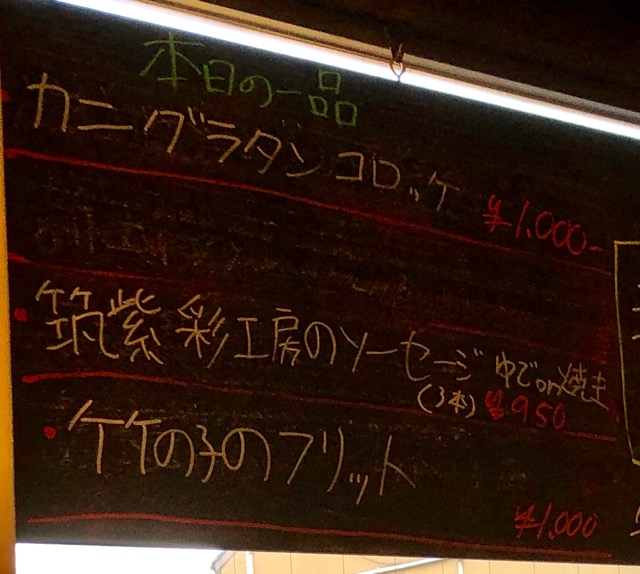 本日の一品
カニグラタンコロッケ ¥1.000-
筑紫彩工房のソーセージ ゆでor焼き
(3本) ¥950
竹の子のフリット
¥1.000